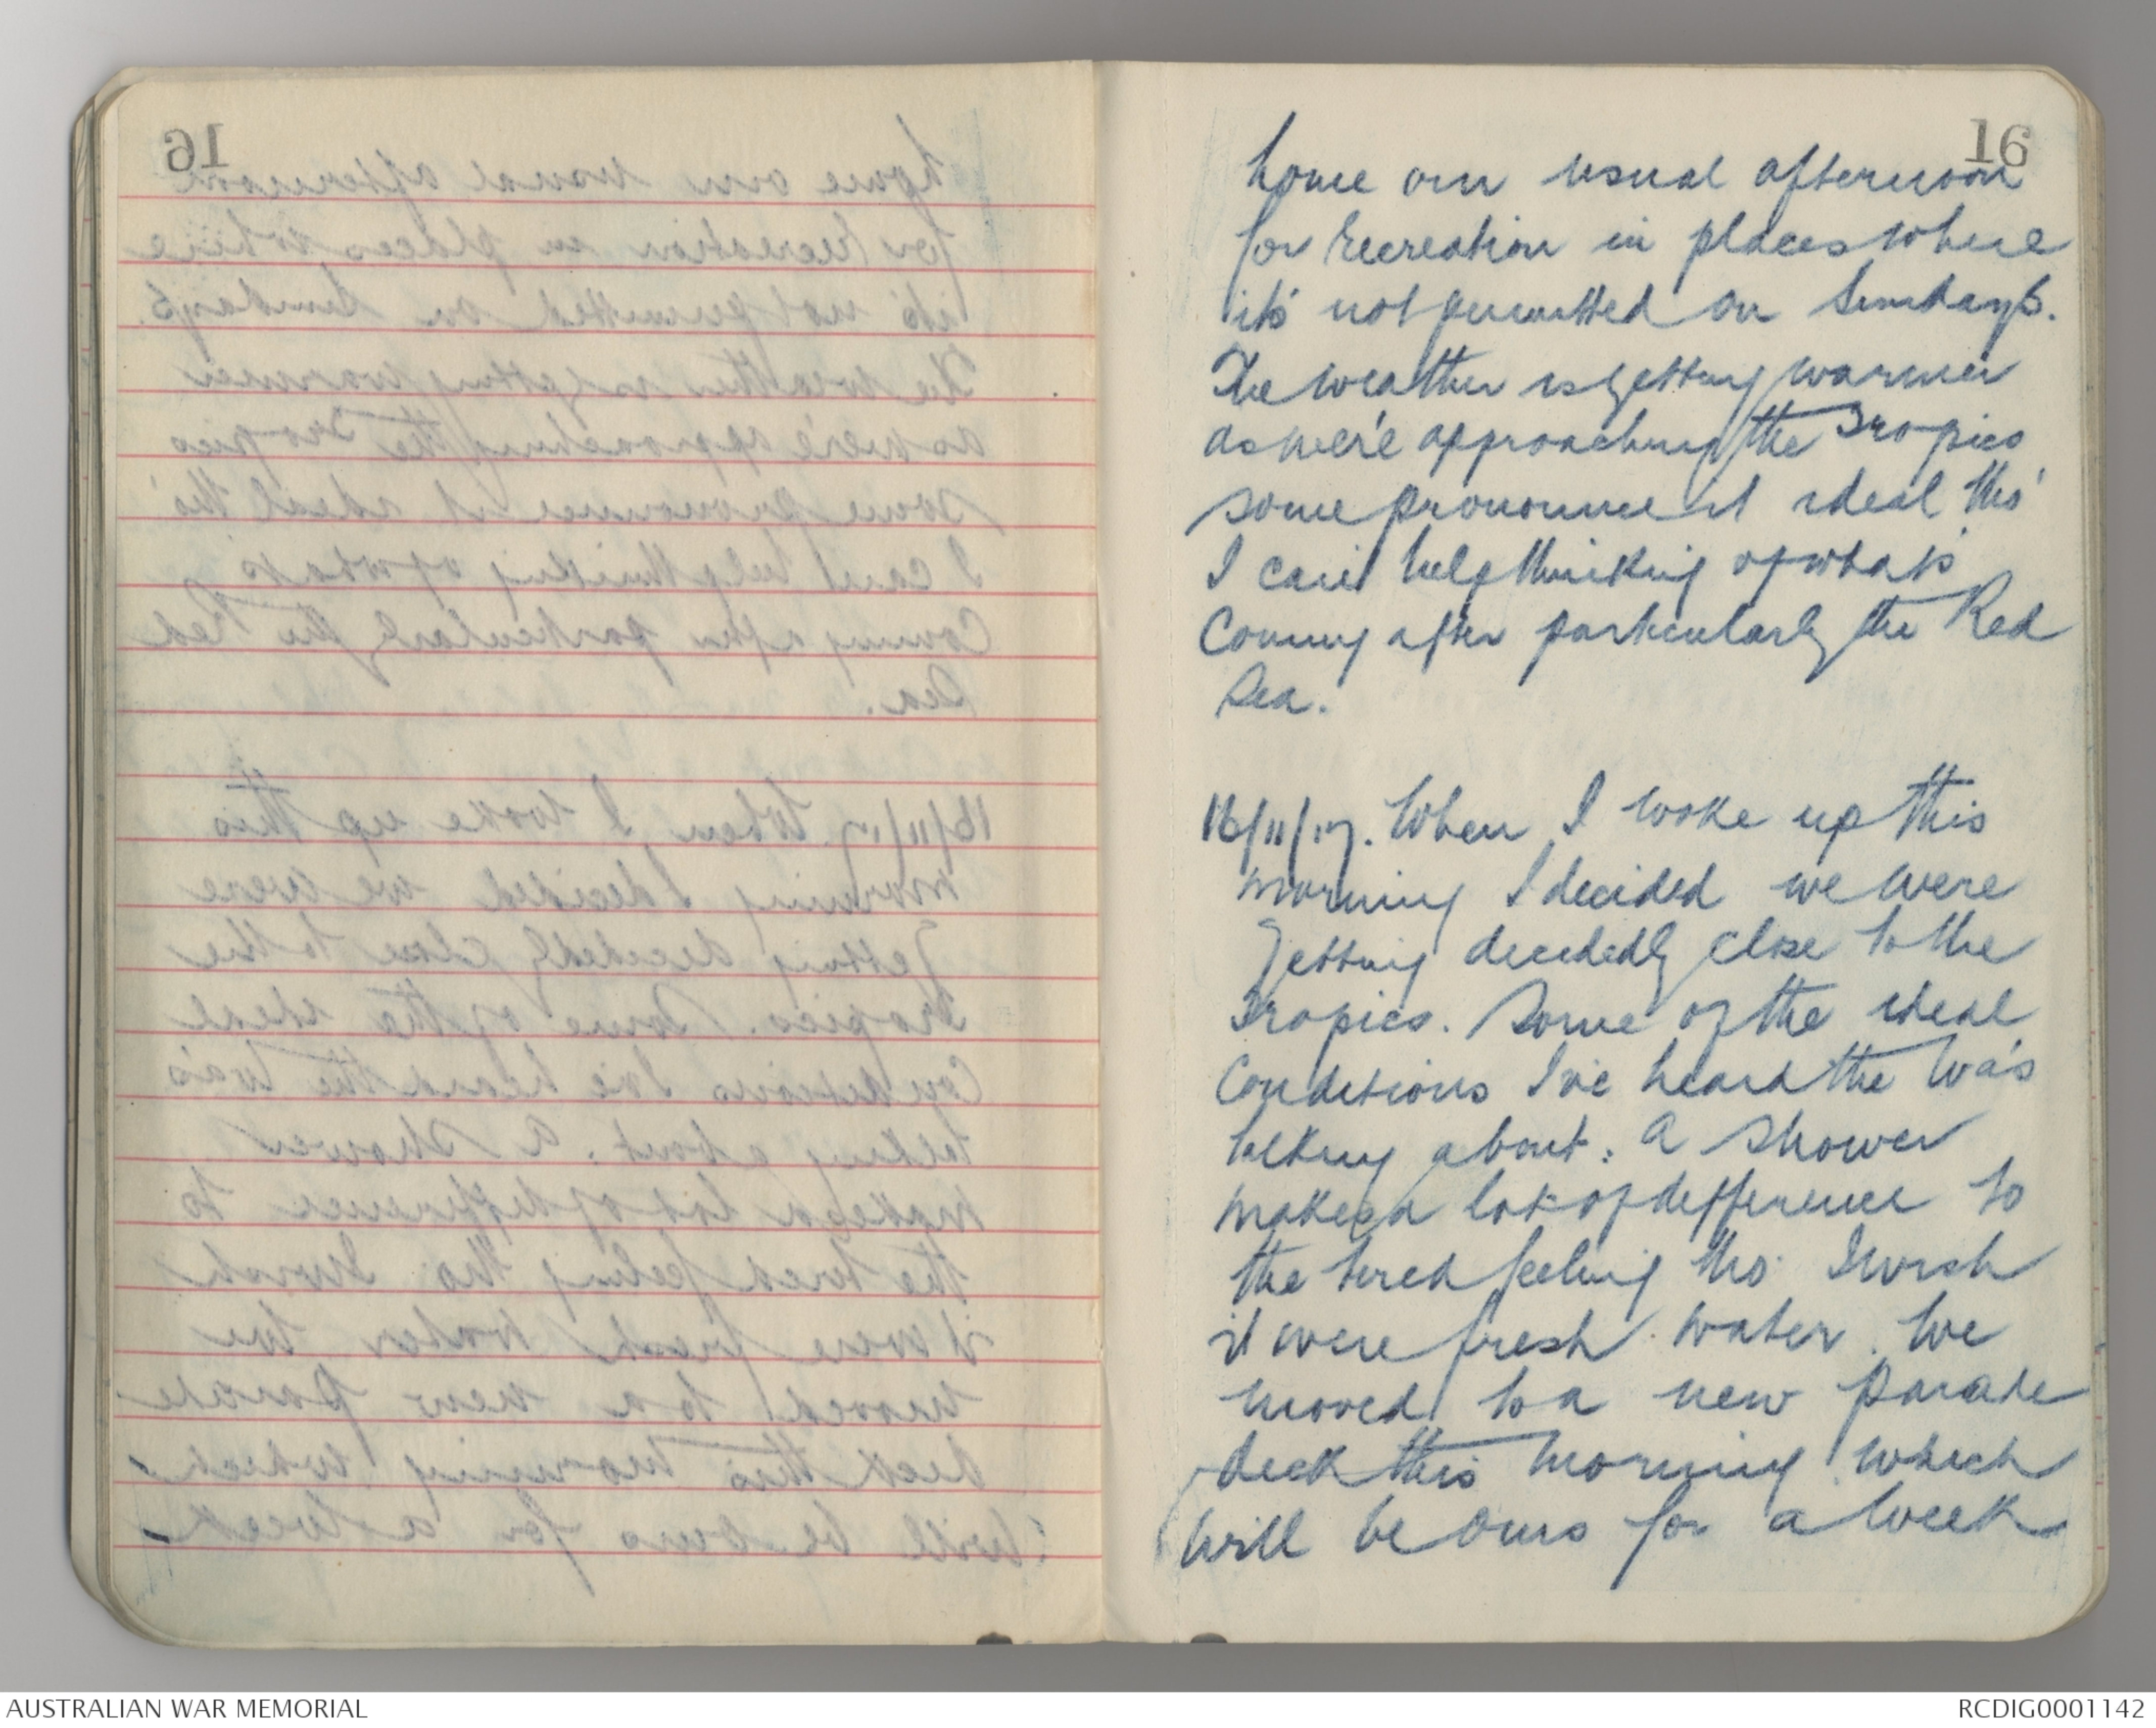 16
home our usual afternoon
for recreation in places where
it's not permitted on Sundays.
The weather is getting warmer
as we're approaching the Tropics
some pronounce it ideal tho'
I can't help thinking of what's
coming after particularly the Red
Sea.
16/11/17. When I woke up this
morning I decided we were
getting decidedly close to the
Tropics. Some of the ideal
conditions I've heard the Wa's
talking about: A shower
makes a lot of difference to
the tired feeling tho I wish
it were fresh water. We
moved to a new parade
deck this morning which
will be ours for a week
AUSTRALIAN WAR MEMORIAL
RCDIG0001142